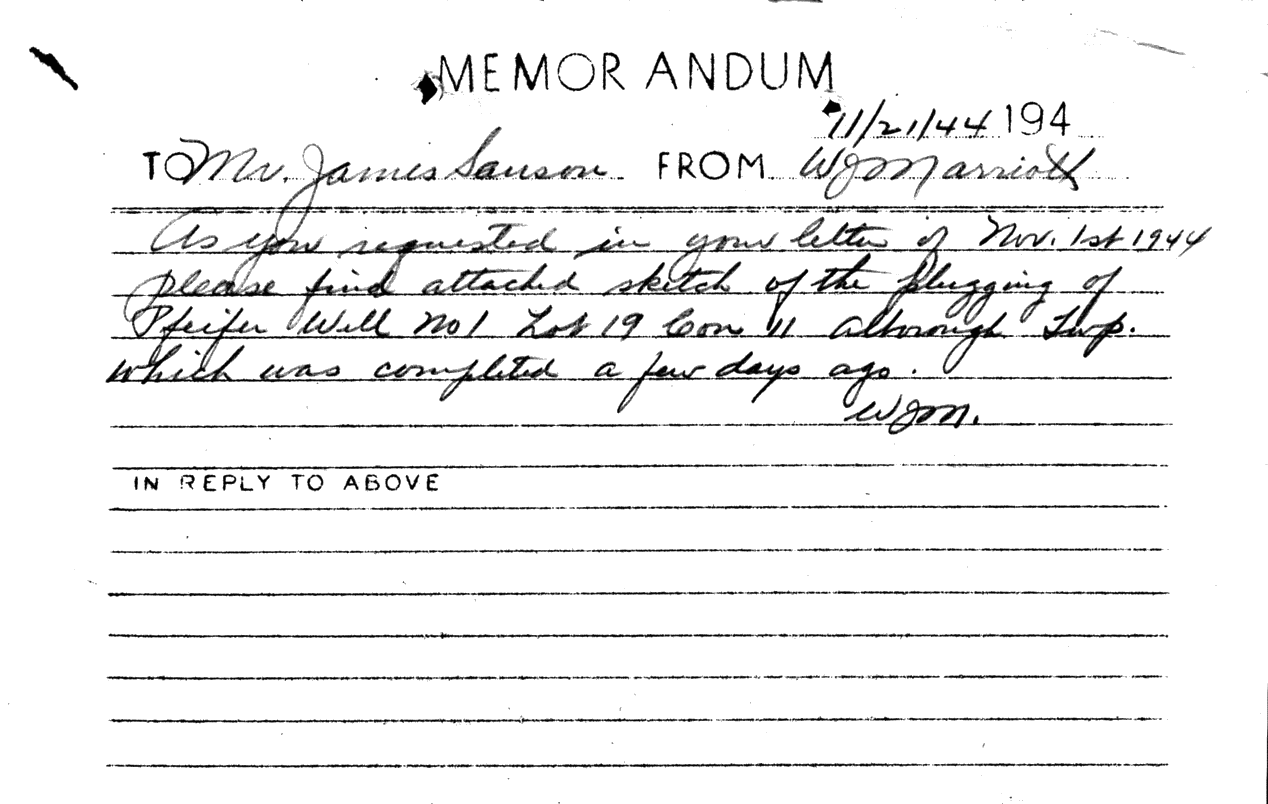 MEMORANDUM
11/21/44 194
TO Mr. James Sanson FROM WJ Marriott
As you requested in your letter of Nov. 1st 1944
please find attached sketch of the plugging of
Pfeifer Well No 1 Lot 19 Con 11 Alborough Twp.
which was completed a few days ago.
WJM.
IN REPLY TO ABOVE